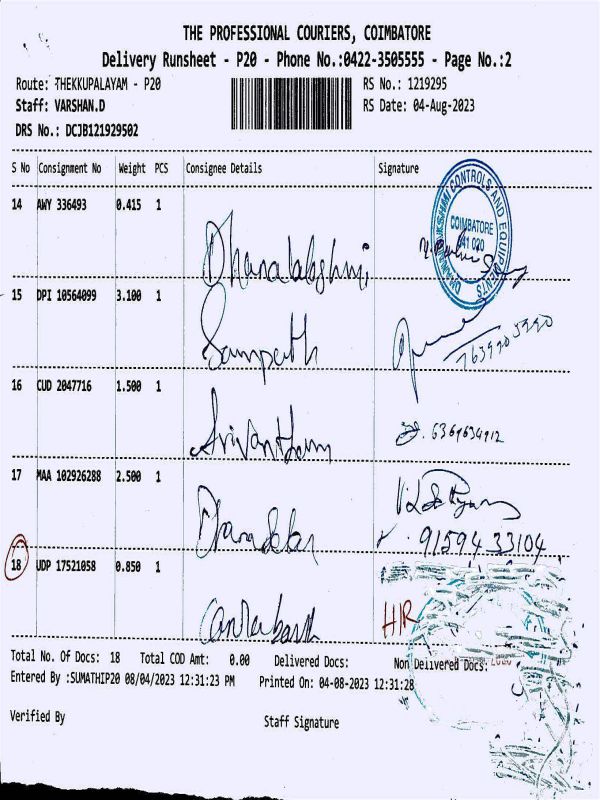 THE PROFESSIONAL COURIERS, COIMBATORE
Delivery Runsheet - P20 - Phone No.:0422-3505555 - Page No.:2
Route: THEKKUPALAYAM - P20 RS No.: 1219295
Staff: VARSHAN.D RS Date: 04-Aug-2023
DRS No.: DCJB121929502
S No Consignment No Weight PCS Consignee Details Signature
14 AWY 336493 0.415 1
CONTROLS AND EQUIPMENTS
COIMBATORE
641 020
Dhanalakshmi
15 DPI 10564099 3.100 1
Sampath
16 CUD 2047716 1.500 1
6369634912
17 MAA 102926288 2.500 1
9159433104
18 UDP 17521058 0.850 1
HIR
Total No. Of Docs: 18 Total COD Amt: 0.00 Delivered Docs: Non Delivered Docs:
Entered By :SUMATHIP20 08/04/2023 12:31:23 PM Printed On: 04-08-2023 12:31:28
Verified By Staff Signature